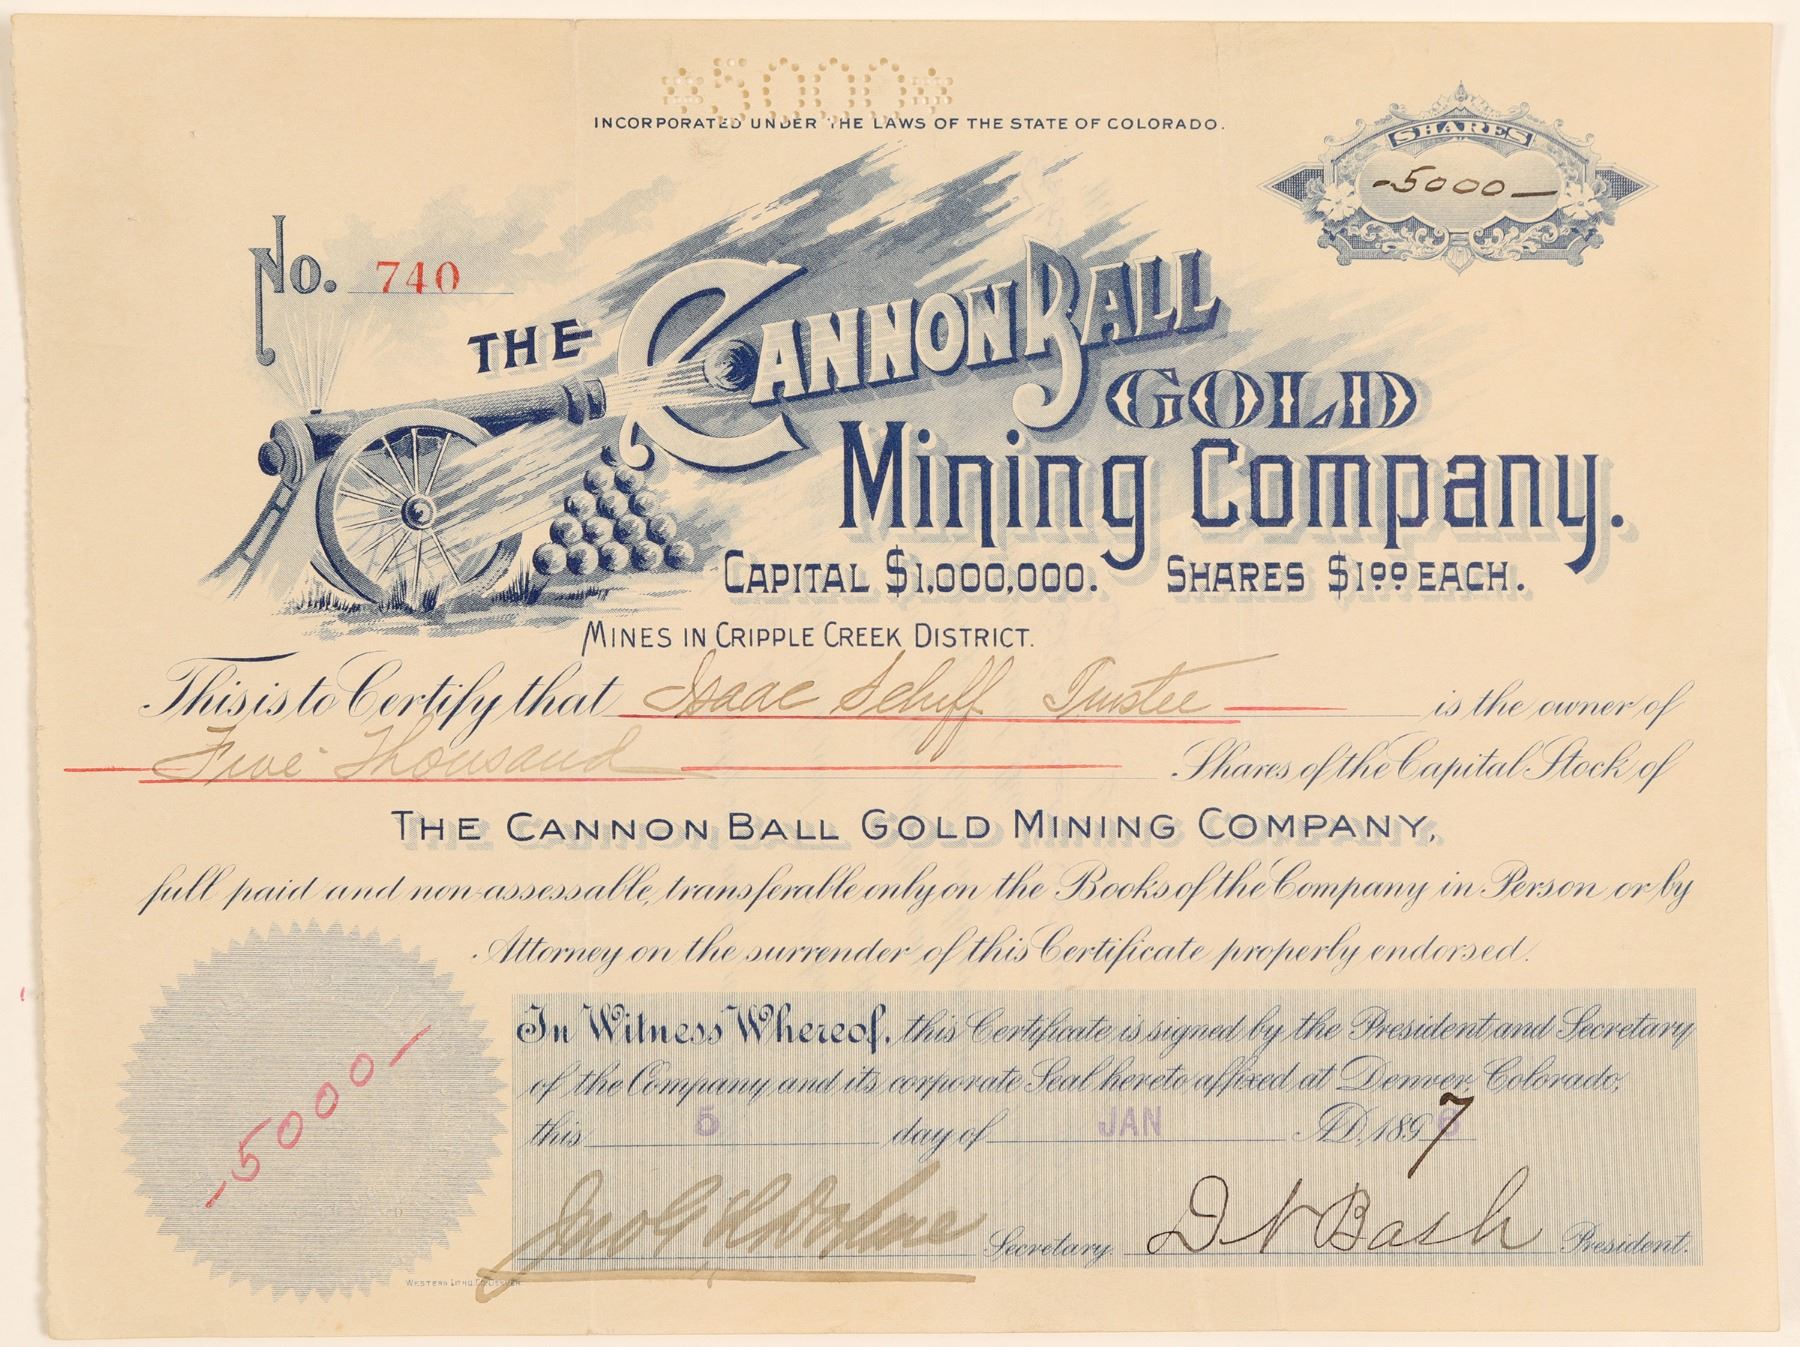 *5000*
INCORPORATED UNDER THE LAWS OF THE STATE OF COLORADO.
SHARES
-5000-
No. 740
THE CANNON BALL
GOLD
Mining Company.
CAPITAL $1,000,000. SHARES $1.00 EACH.
MINES IN CRIPPLE CREEK DISTRICT.
This is to Certify that Isaac Schiff Trustee is the owner of
Five Thousand Shares of the Capital Stock of
THE CANNON BALL GOLD MINING COMPANY,
full paid and non-assessable, transferable only on the Books of the Company in Person or by
Attorney on the surrender of this Certificate properly endorsed.
In Witness Whereof, this Certificate is signed by the President and Secretary
of the Company and its corporate Seal hereto affixed at Denver, Colorado,
this 5 day of JAN A.D. 1897
-5000-
Jno G Secretary. D N Bash President.
WESTERN LITHO. CO. DENVER